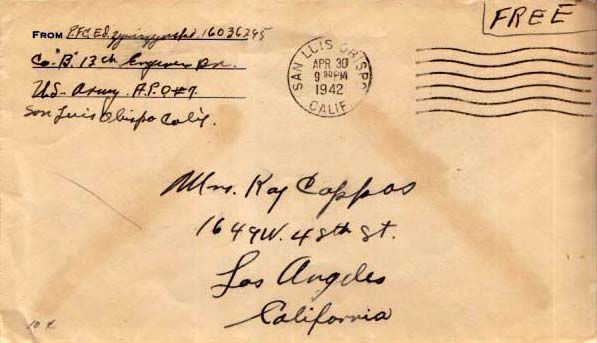 FREE
FROM P.F.C. Ed. 16036295
Co. "B" 13th Engineer Bn.
U.S. Army. A.P.O #7
San Luis Obispo Calif.
SAN LUIS OBISPO
APR 30
9 30 PM
1942
CALIF.
Mrs. Kay Cappos
1649 W. 48th St.
Los Angeles
California
10¢